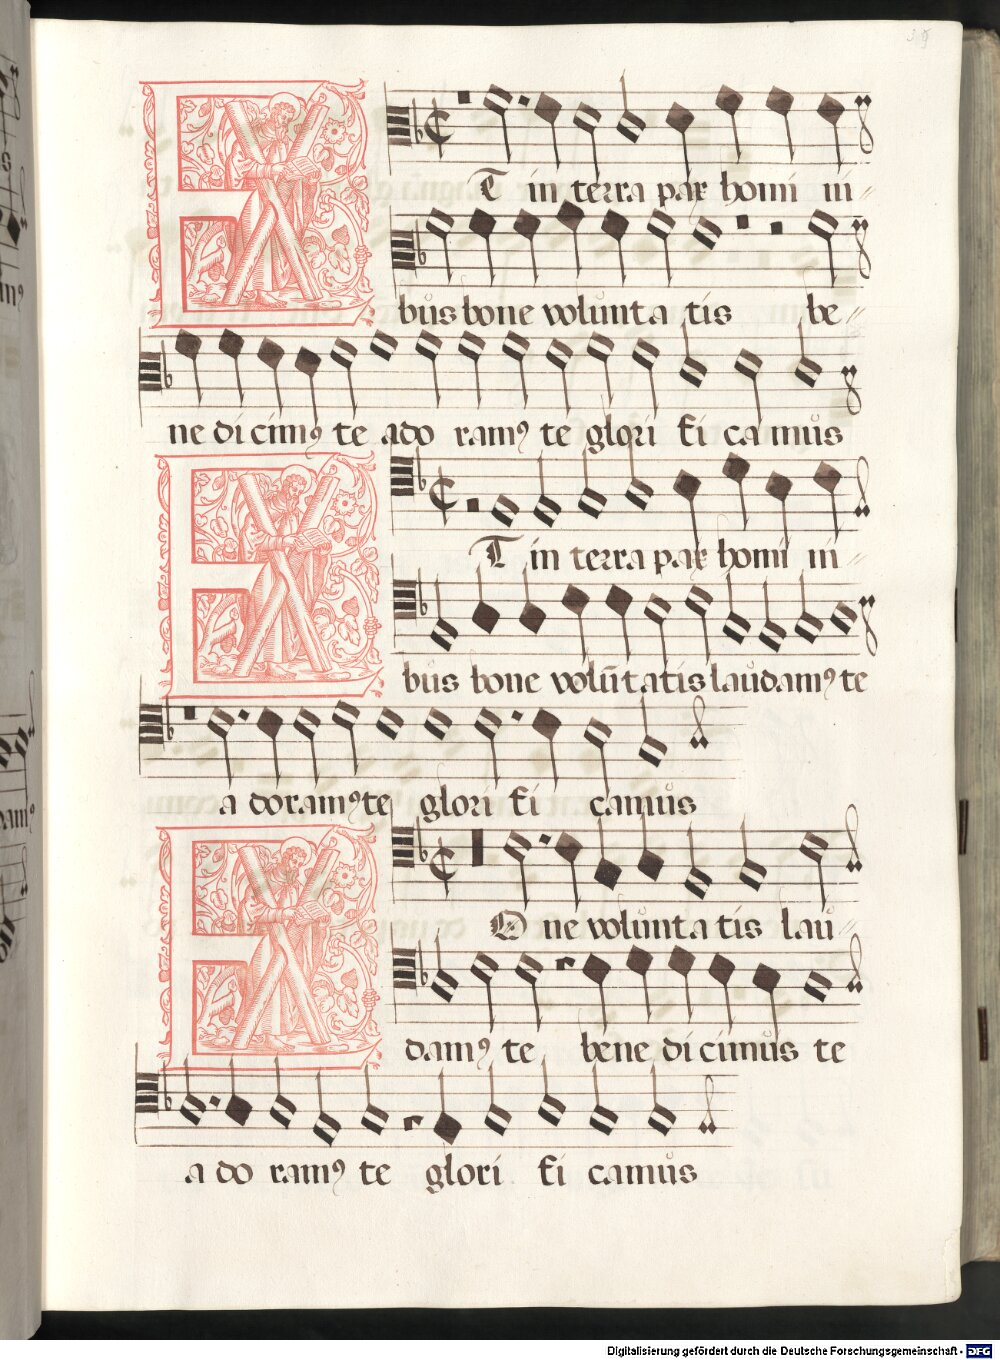 39
Et in terra pax homi ni
bus bone volunta tis be
ne di cimꝰ te ado ramꝰ te glori fi camus
Et in terra pax homi ni
bus bone volūtatis laudamꝰ te
a doramꝰ te glori fi camus
O ne volunta tis lau
damꝰ te bene di cimus te
a do ramꝰ te glori fi camus
Digitalisierung gefördert durch die Deutsche Forschungsgemeinschaft - DFG